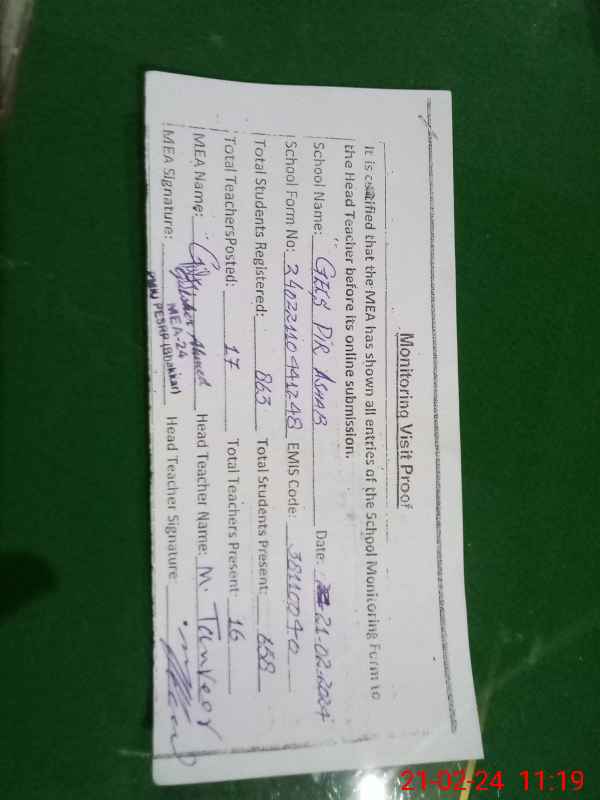 Monitoring Visit Proof
It is certified that the MEA has shown all entries of the School Monitoring Form to
the Head Teacher before its online submission.
School Name: GES PIR ASHAB Date: 21-02-2024
School Form No: 2402211044 1248 EMIS Code: 38110040
Total Students Registered: 863 Total Students Present: 658
Total TeachersPosted: 17 Total Teachers Present: 16
MEA Name: Ahmed Head Teacher Name: M. Tanveer
MEA Signature: MEA-24 Head Teacher Signature:
PESRP (Bhakkar)
21-02-24 11:19